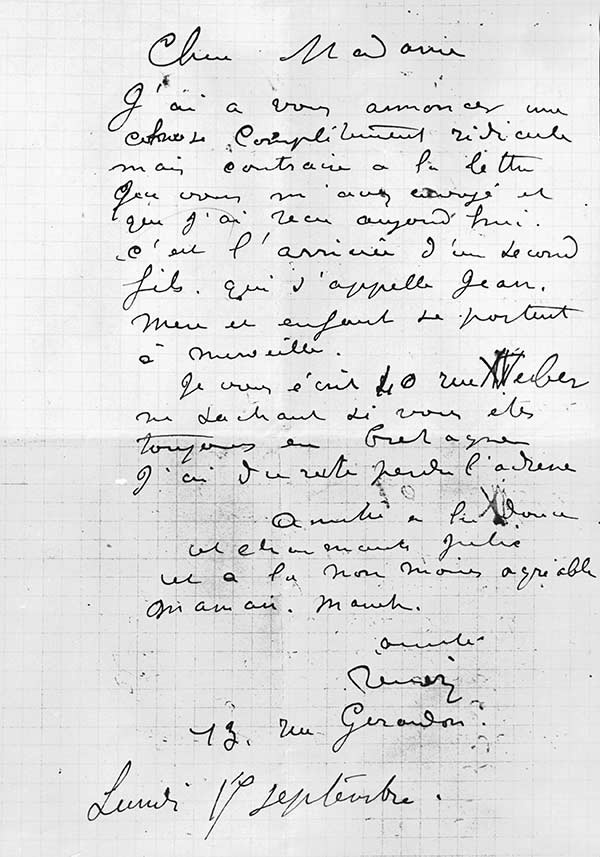 Chere Madame
J'ai a vous annoncer une
chose complètement ridicule
mais contraire a la lettre
que vous m'avez envoyé et
que j'ai reçu aujourd'hui.
c'est l'arrivée d'un second
fils. qui s'appelle Jean.
Mere et enfant se portent
à merveille.
Je vous écris 40 rue Weber
ne sachant si vous etes
toujours en Bretagne
J'ai du reste perdu l'adresse
Amitié a la douce
et charmante Julie
et a la non moins agréable
maman.
amitié
Renoir
13. rue Girardon.
Lundi septembre.